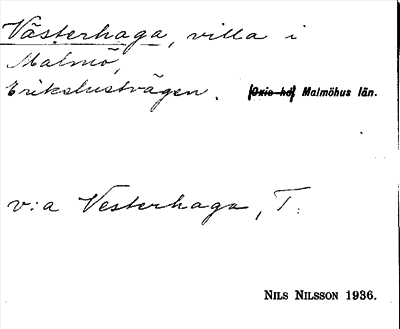 Västerhaga, villa i
Malmö,
Erikslustvägen. Oxie hd Malmöhus län.
v:a Vesterhaga, T.
NILS NILSSON 1936.